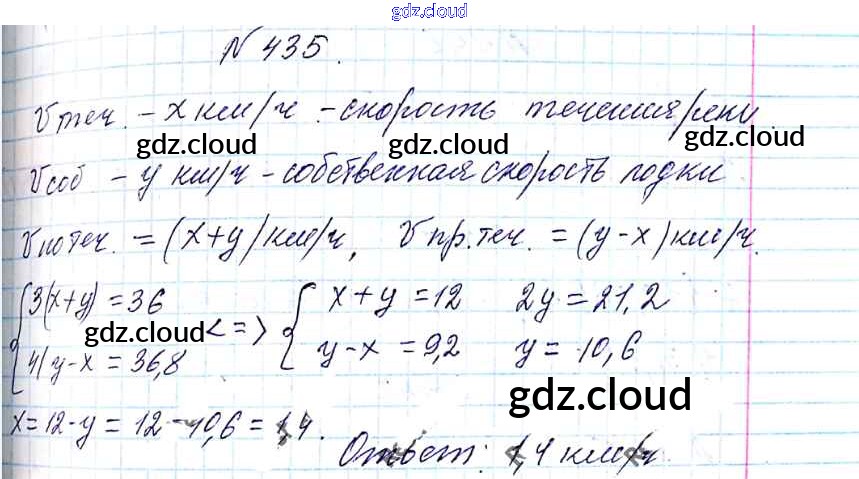 gdz.cloud
N 435.
Vтеч. – x км/ч – скорость течения реки.
gdz.cloud gdz.cloud gdz.cloud
Vсоб – y км/ч – собственная скорость лодки
Vпо теч. = (x+y) км/ч, Vпр. теч. = (y-x) км/ч.
{3(x+y) = 36 <=> {x+y = 12 2y = 21,2
gdz.cloud
4(y-x = 36,8 y-x = 9,2 y = 10,6
gdz.cloud
x = 12-y = 12-10,6 = 1,4.
Ответ: 1,4 км/ч